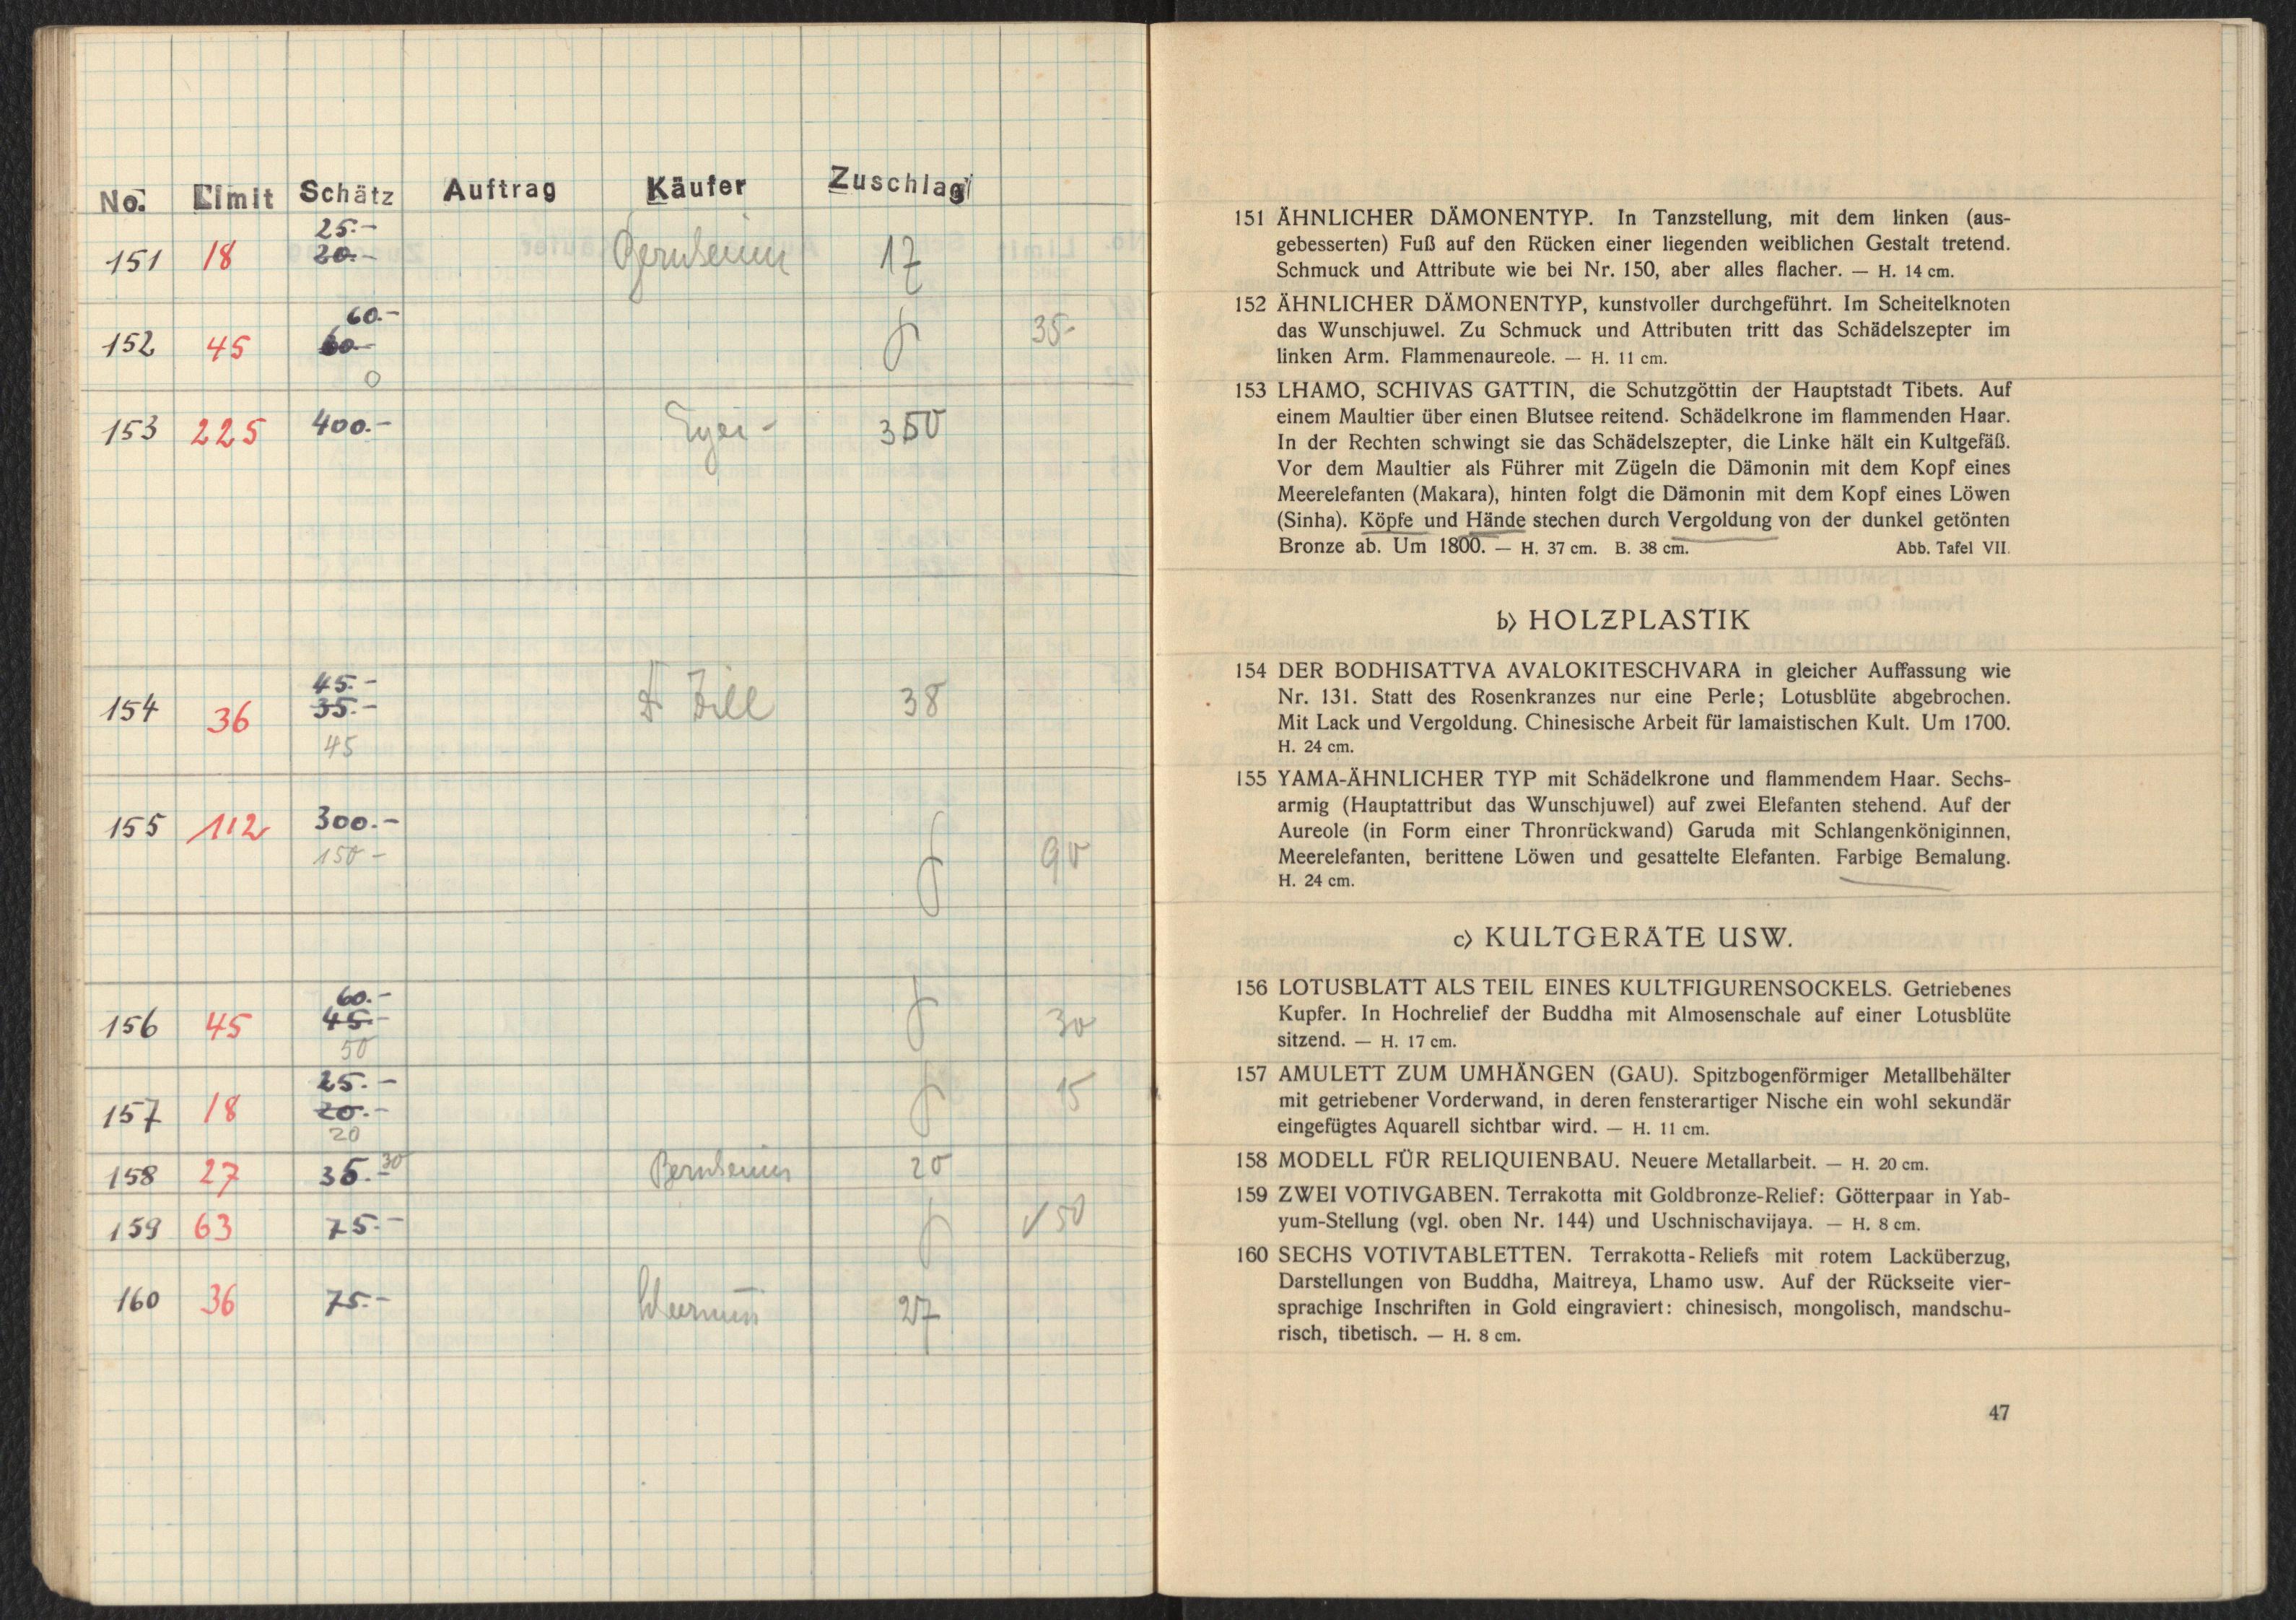 No. Limit Schätz Auftrag Käufer Zuschlag
25.-
151 18 20.- Bernheim 17
60.-
152 45 60.- 35-
0
153 225 400.- 350
45.-
154 36 35.- Dr Zill 38
45
155 112 300.-
150- 90
60.-
156 45 45.- 30
50
25.- 15
157 18 20.-
20
158 27 35.- 30 Bernheim 20
159 63 75.- √50
160 36 75.- 27
151 ÄHNLICHER DÄMONENTYP. In Tanzstellung, mit dem linken (aus-
gebesserten) Fuß auf den Rücken einer liegenden weiblichen Gestalt tretend.
Schmuck und Attribute wie bei Nr. 150, aber alles flacher. — H. 14 cm.
152 ÄHNLICHER DÄMONENTYP, kunstvoller durchgeführt. Im Scheitelknoten
das Wunschjuwel. Zu Schmuck und Attributen tritt das Schädelszepter im
linken Arm. Flammenaureole. — H. 11 cm.
153 LHAMO, SCHIVAS GATTIN, die Schutzgöttin der Hauptstadt Tibets. Auf
einem Maultier über einen Blutsee reitend. Schädelkrone im flammenden Haar.
In der Rechten schwingt sie das Schädelszepter, die Linke hält ein Kultgefäß.
Vor dem Maultier als Führer mit Zügeln die Dämonin mit dem Kopf eines
Meerelefanten (Makara), hinten folgt die Dämonin mit dem Kopf eines Löwen
(Sinha). Köpfe und Hände stechen durch Vergoldung von der dunkel getönten
Bronze ab. Um 1800. — H. 37 cm. B. 38 cm. Abb. Tafel VII.
b) HOLZPLASTIK
154 DER BODHISATTVA AVALOKITESCHVARA in gleicher Auffassung wie
Nr. 131. Statt des Rosenkranzes nur eine Perle; Lotusblüte abgebrochen.
Mit Lack und Vergoldung. Chinesische Arbeit für lamaistischen Kult. Um 1700.
H. 24 cm.
155 YAMA-ÄHNLICHER TYP mit Schädelkrone und flammendem Haar. Sechs-
armig (Hauptattribut das Wunschjuwel) auf zwei Elefanten stehend. Auf der
Aureole (in Form einer Thronrückwand) Garuda mit Schlangenköniginnen,
Meerelefanten, berittene Löwen und gesattelte Elefanten. Farbige Bemalung.
H. 24 cm.
c) KULTGERÄTE USW.
156 LOTUSBLATT ALS TEIL EINES KULTFIGURENSOCKELS. Getriebenes
Kupfer. In Hochrelief der Buddha mit Almosenschale auf einer Lotusblüte
sitzend. — H. 17 cm.
157 AMULETT ZUM UMHÄNGEN (GAU). Spitzbogenförmiger Metallbehälter
mit getriebener Vorderwand, in deren fensterartiger Nische ein wohl sekundär
eingefügtes Aquarell sichtbar wird. — H. 11 cm.
158 MODELL FÜR RELIQUIENBAU. Neuere Metallarbeit. — H. 20 cm.
159 ZWEI VOTIVGABEN. Terrakotta mit Goldbronze-Relief: Götterpaar in Yab-
yum-Stellung (vgl. oben Nr. 144) und Uschnischavijaya. — H. 8 cm.
160 SECHS VOTIVTABLETTEN. Terrakotta-Reliefs mit rotem Lacküberzug,
Darstellungen von Buddha, Maitreya, Lhamo usw. Auf der Rückseite vier-
sprachige Inschriften in Gold eingraviert: chinesisch, mongolisch, mandschu-
risch, tibetisch. — H. 8 cm.
47